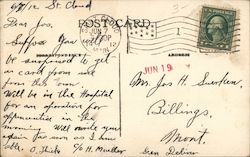 6/7/12 St. Cloud
POST CARD.
Dear Jos.
Suppose you will
be surprised to get
a card from me
from this town.
Will be in the Hospital
for an operation for
appendicitis in the
morning. Will write you
more soon as I am
able.
CORRESPONDENCE
ADDRESS
JUN 19
Mr. Jos H.
Billings,
Mont.
Gen Delivery